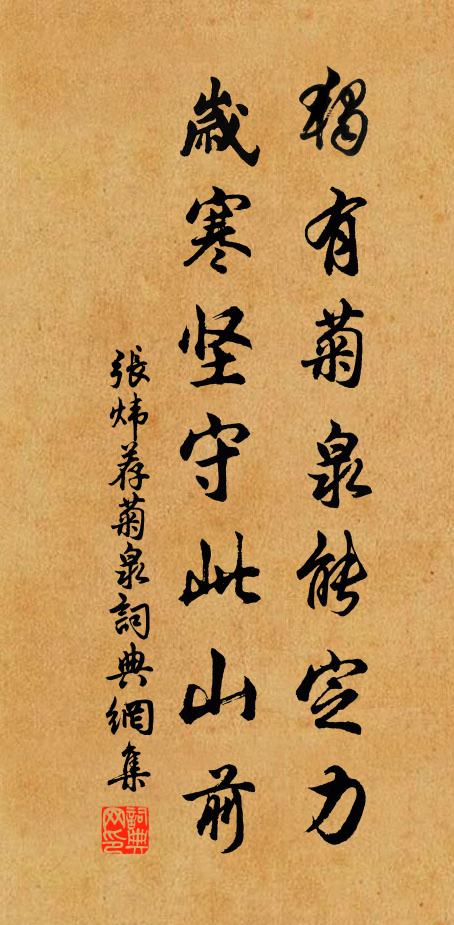 獨有菊泉能定力
歲寒坚守此山前
張炜荐菊泉詞典網集
詞典網印